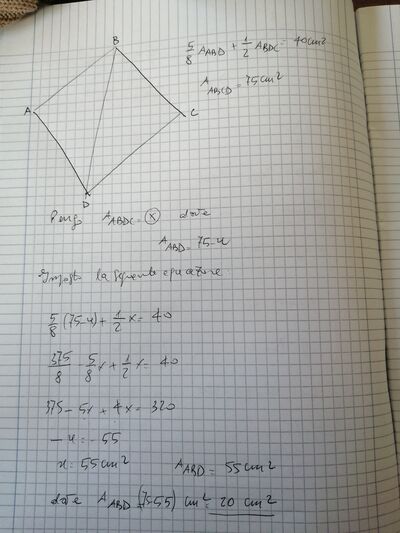 B
5/8 A_ABD + 1/2 A_BDC = 40 cm²
A_ABCD = 75 cm²
A
C
D
Pongo A_ABDC = x dove
A_ABD = 75-x
Imposto la seguente equazione
5/8 (75-x) + 1/2 x = 40
375/8 - 5/8 x + 1/2 x = 40
375 - 5x + 4x = 320
-x = -55
x = 55 cm² A_ABD = 55 cm²
dove A_ABD (75-55) cm² = 20 cm²